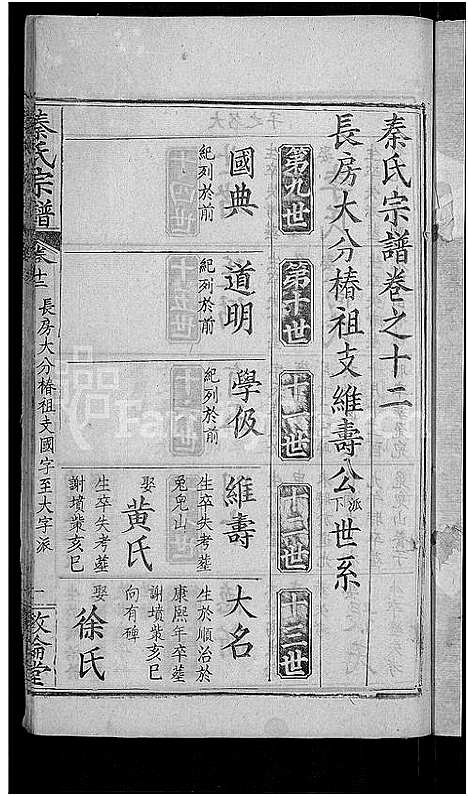 秦氏宗譜卷之十二
長房大分椿祖支維壽公派下世系
第九世
第十世
十一世
十二世
十三世
國典
紀列於前
道明
紀列於前
學伋
紀列於前
維壽
生卒失考葬
兎鬼山
娶黃氏
生卒失考葬
謝墳業亥巳
大名
生於順治於
康熙年卒葬
謝墳業亥巳
向有碑
娶徐氏
秦氏宗譜
卷十二
長房大分椿祖支國字至大字派
一
敦倫堂